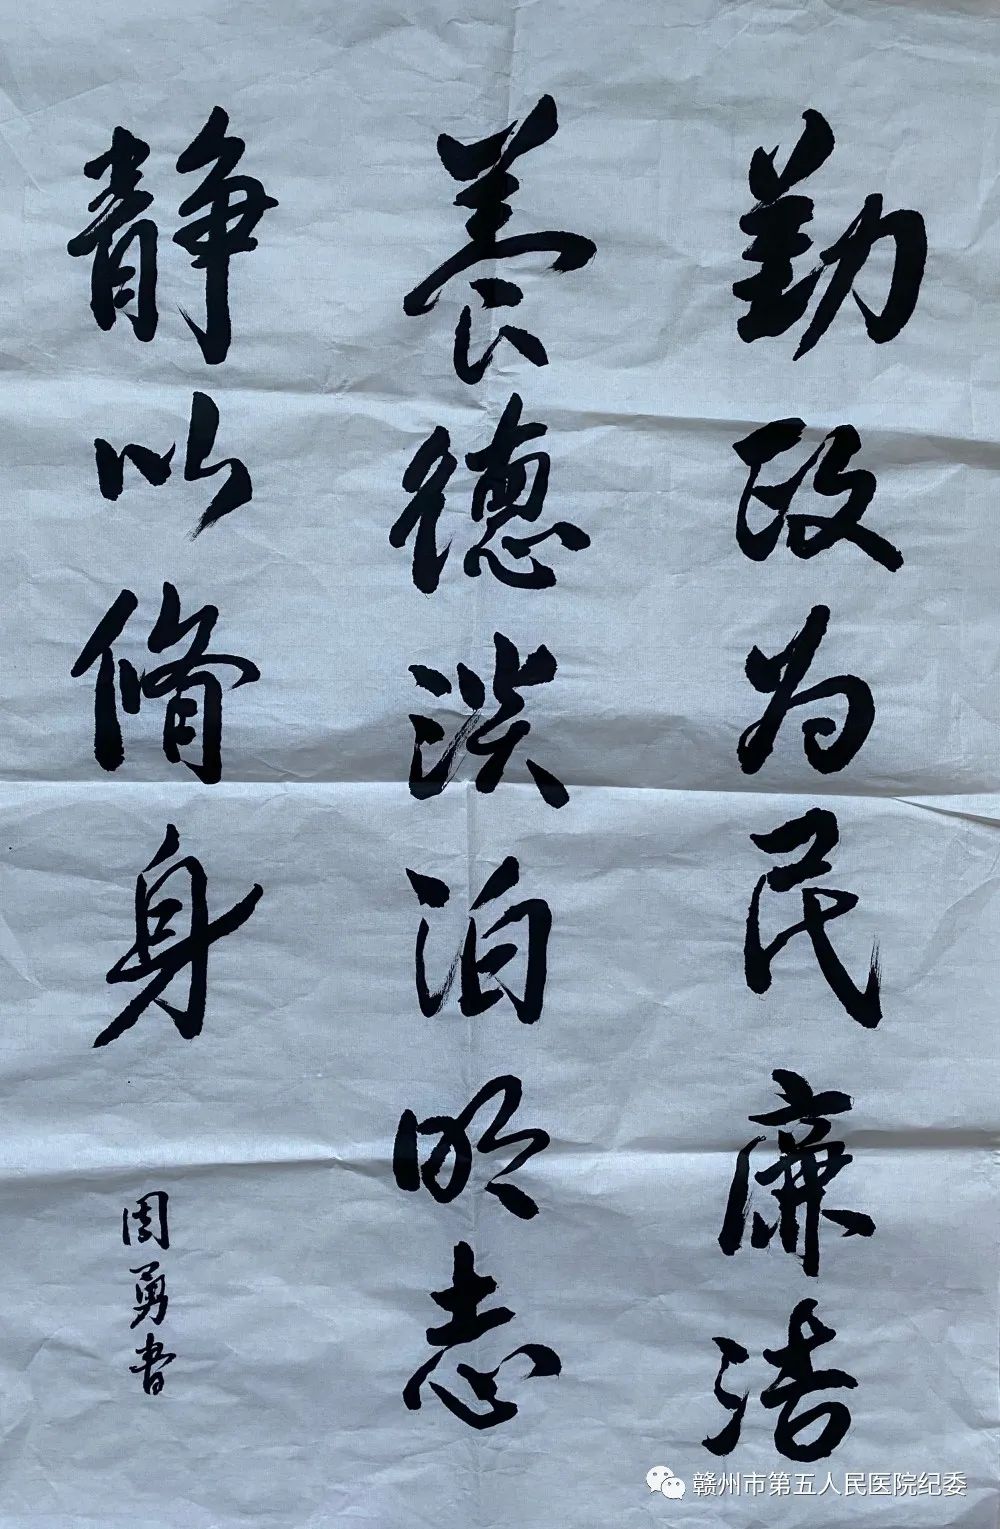 勤政为民廉洁
养德淡泊明志
静以脩身
周勇书
赣州市第五人民医院纪委